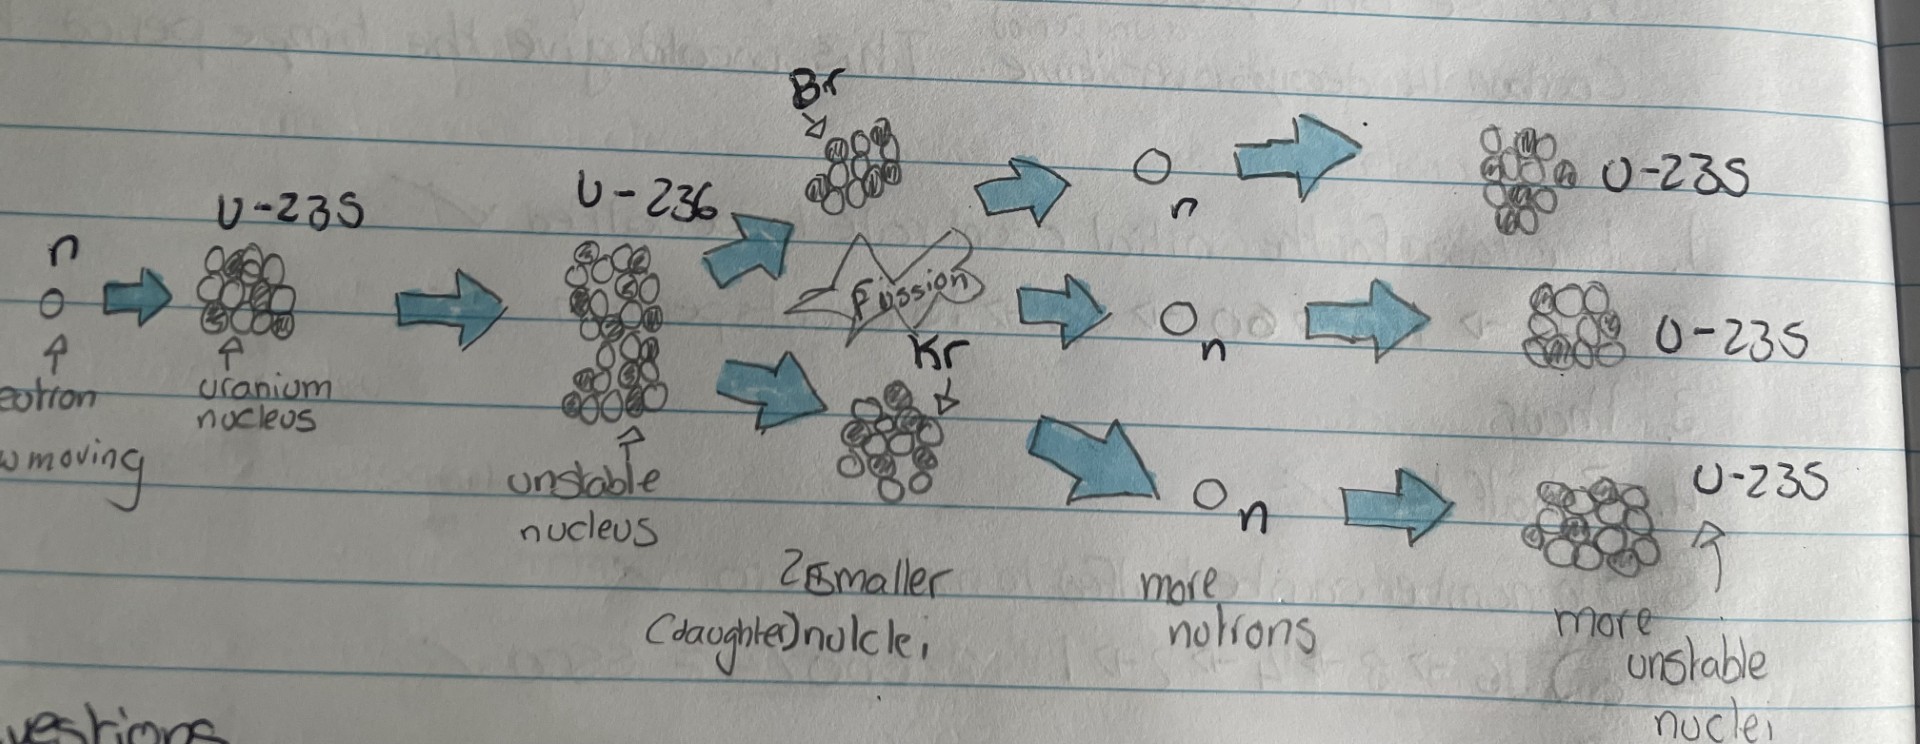 Br
U-235
U-236
n
n
U-235
Fussion
n
U-235
Kr
eutron
uranium
nucleus
w moving
unstable
nucleus
n
U-235
2 smaller
(daughter) nulclei
more
notrons
more
unstable
nuclei
uestions